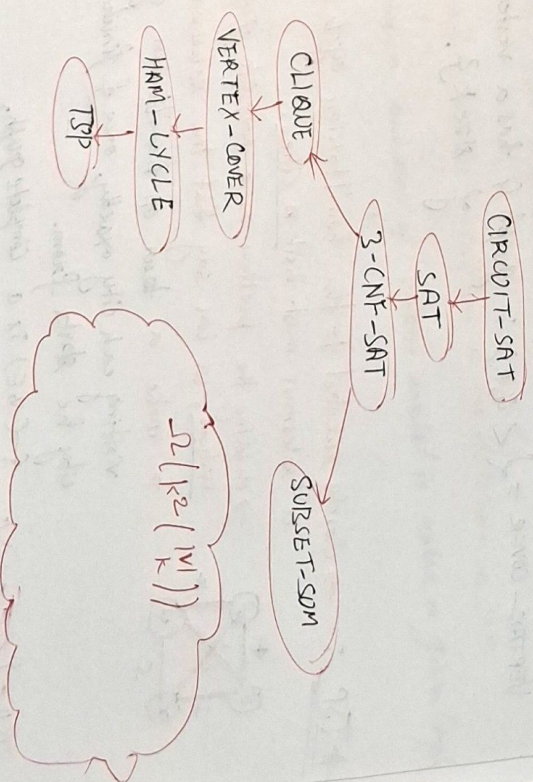 CIRCUIT-SAT
SAT
3-CNF-SAT
CLIQUE
SUBSET-SUM
VERTEX-COVER
HAM-CYCLE
TSP
Ω(k²(|V|
k))